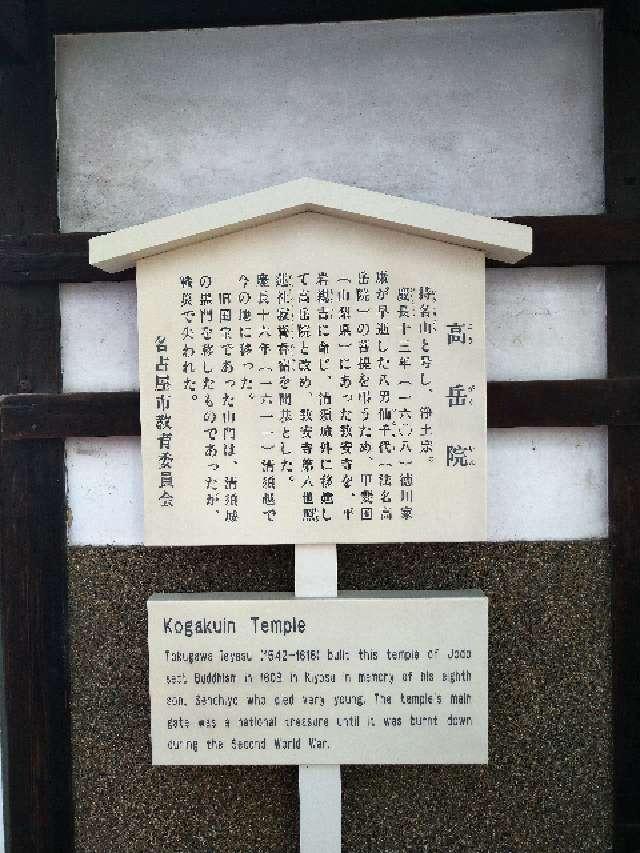 高岳院
こう がく いん
慶長十三年（一六〇八）徳川家
康が早逝した八男仙千代（法名高
岳院）の菩提を弔うため、甲斐国
（山梨県）にあった教安寺を、平
岩親吉に命じ、清須城外に移建し
て高岳院と改め、教安寺第八世
を開基とした。
慶長十六年（一六一一）清須越で
今の地に移った。
旧国宝であった山門は、清須城
の を移したものであったが、
戦災で失われた。
名古屋市教育委員会
Kogakuin Temple
Tokugawa Ieyasu (1542-1616) built this temple of Jodo
sect Buddhism in in Kiyosu in memory of his eighth
son, Senchiyo who died very young. The temple's main
gate was a national treasure until it was burnt down
during the Second World War.